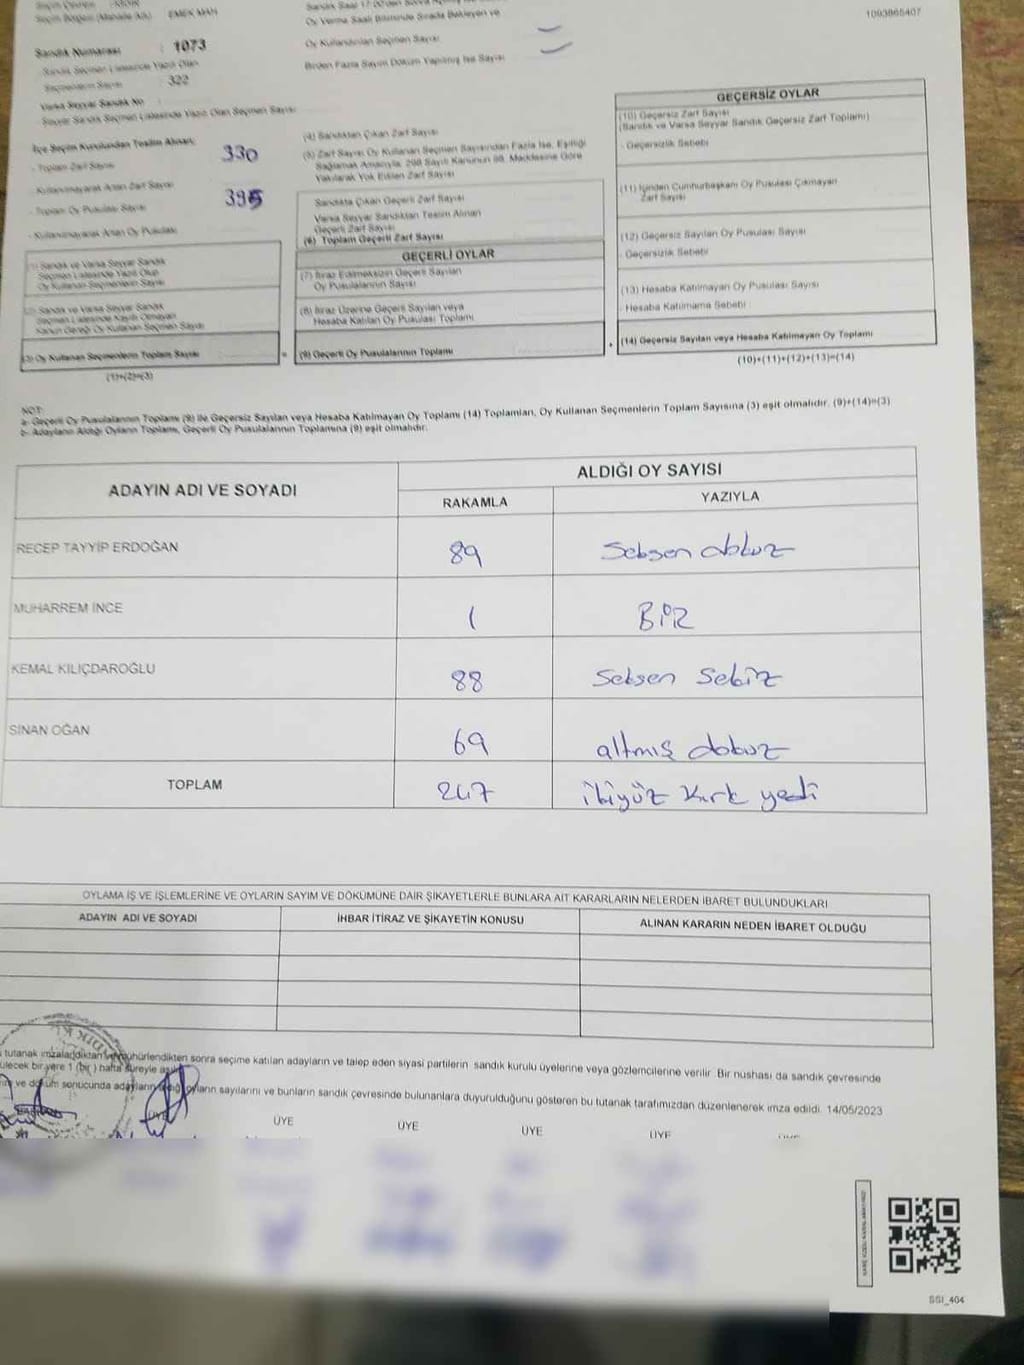 Seçim Bölgesi (Mahalle Adı) : EMEK MAH
Sandık Numarası : 1073
Sandık Seçmen Listesinde Yazılı Olan
Seçmenlerin Sayısı : 322
Varsa Seyyar Sandık No
Seyyar Sandık Seçmen Listesinde Yazılı Olan Seçmen Sayısı
Oy Verme Saati Bitiminde Sırada Bekleyen ve
Oy Kullandırılan Seçmen Sayısı
Birden Fazla Sayım Döküm Yapılmış İse Sayısı
1093865407
İlçe Seçim Kurulundan Teslim Alınan;
- Toplam Zarf Sayısı 330
- Kullanılmayarak Artan Zarf Sayısı
- Toplam Oy Pusulası Sayısı 395
- Kullanılmayarak Artan Oy Pusulası
(1) Sandık ve Varsa Seyyar Sandık
Seçmen Listesinde Yazılı Olup
Oy Kullanan Seçmenlerin Sayısı
(2) Sandık ve Varsa Seyyar Sandık
Seçmen Listesinde Kayıtlı Olmayan
Kanun Gereği Oy Kullanan Seçmen Sayısı
(3) Oy Kullanan Seçmenlerin Toplam Sayısı
(1)+(2)=(3)
(4) Sandıktan Çıkan Zarf Sayısı
(5) Zarf Sayısı Oy Kullanan Seçmen Sayısından Fazla İse, Eşitliği
Sağlamak Amacıyla, 298 Sayılı Kanunun 98. Maddesine Göre
Yakılarak Yok Edilen Zarf Sayısı
Sandıkta Çıkan Geçerli Zarf Sayısı
Varsa Seyyar Sandıktan Teslim Alınan
Geçerli Zarf Sayısı
(6) Toplam Geçerli Zarf Sayısı
GEÇERLİ OYLAR
(7) İtiraz Edilmeksizin Geçerli Sayılan
Oy Pusulalarının Sayısı
(8) İtiraz Üzerine Geçerli Sayılan veya
Hesaba Katılan Oy Pusulası Toplamı
(9) Geçerli Oy Pusulalarının Toplamı
GEÇERSİZ OYLAR
(10) Geçersiz Zarf Sayısı
(Sandık ve Varsa Seyyar Sandık Geçersiz Zarf Toplamı)
- Geçersizlik Sebebi
(11) İçinden Cumhurbaşkanı Oy Pusulası Çıkmayan
Zarf Sayısı
(12) Geçersiz Sayılan Oy Pusulası Sayısı
- Geçersizlik Sebebi
(13) Hesaba Katılmayan Oy Pusulası Sayısı
- Hesaba Katılmama Sebebi
(14) Geçersiz Sayılan veya Hesaba Katılmayan Oy Toplamı
(10)+(11)+(12)+(13)=(14)
NOT:
a- Geçerli Oy Pusulalarının Toplamı (9) ile Geçersiz Sayılan veya Hesaba Katılmayan Oy Toplamı (14) Toplamları, Oy Kullanan Seçmenlerin Toplam Sayısına (3) eşit olmalıdır. (9)+(14)=(3)
b- Adayların Aldığı Oyların Toplamı, Geçerli Oy Pusulalarının Toplamına (9) eşit olmalıdır.
ADAYIN ADI VE SOYADI
ALDIĞI OY SAYISI
RAKAMLA YAZIYLA
RECEP TAYYİP ERDOĞAN 89 Seksen dokuz
MUHARREM İNCE 1 BİR
KEMAL KILIÇDAROĞLU 88 Seksen Sekiz
SİNAN OĞAN 69 altmış dokuz
TOPLAM 247 ikiyüz kırk yedi
OYLAMA İŞ VE İŞLEMLERİNE VE OYLARIN SAYIM VE DÖKÜMÜNE DAİR ŞİKAYETLERLE BUNLARA AİT KARARLARIN NELERDEN İBARET BULUNDUKLARI
ADAYIN ADI VE SOYADI İHBAR İTİRAZ VE ŞİKAYETİN KONUSU ALINAN KARARIN NEDEN İBARET OLDUĞU
tutanak imzalandıktan ve mühürlendikten sonra seçime katılan adayların ve talep eden siyasi partilerin sandık kurulu üyelerine veya gözlemcilerine verilir. Bir nushası da sandık çevresinde
bir yere 1 (bir) hafta süreyle
ve döküm sonucunda adayların aldığı oyların sayılarını ve bunların sandık çevresinde bulunanlara duyurulduğunu gösteren bu tutanak tarafımızdan düzenlenerek imza edildi. 14/05/2023
ÜYE ÜYE ÜYE ÜYE
SSI_404